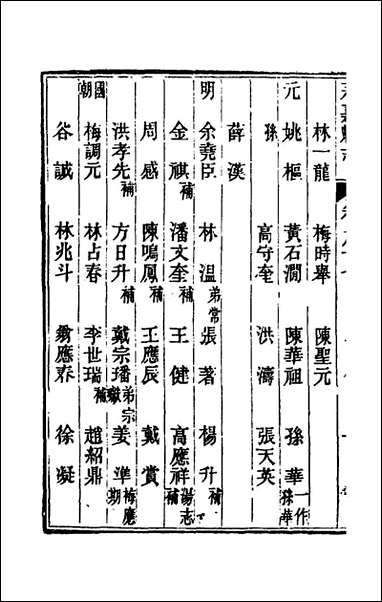 林一龍　梅時舉　陳聖元
元　姚樞　黃石澗　陳華祖　孫華一作孫華
孫　高守奎　洪濤　張天英
薛漢
明　余堯臣　林溫　弟常　張著　楊升補
金祺補　潘文奎補　王健　高應祥湯志補
周感　陳鳴鳳補　王應辰　戴賞
洪孝先補　方日升補　戴宗璠弟宗嶽　姜準梅應期
國朝　梅調元　林占春　李世瑞補　趙紹鼎
谷誠　林兆斗　應春　徐凝